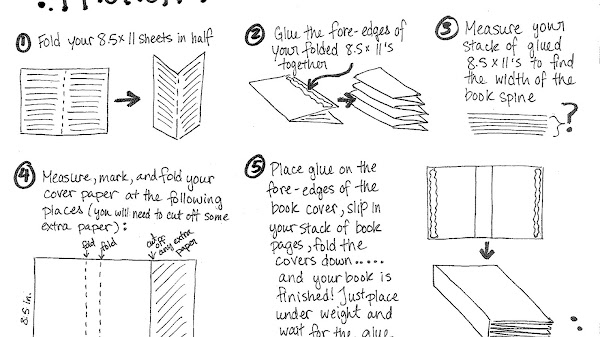 ① Fold your 8.5 x 11 sheets in half
② Glue the fore-edges of
your folded 8.5 x 11's
together
③ Measure your
stack of glued
8.5 x 11's to find
the width of the
book spine
?
④ Measure, mark, and fold your
cover paper at the following
places (you will need to cut off some
extra paper):
fold
fold
cut
off
any extra
paper
8.5 in.
⑤ Place glue on the
fore-edges of the
book cover, slip in
your stack of book
pages, fold the
covers down.....
and your book is
finished! Just place
under weight and
wait for the glue